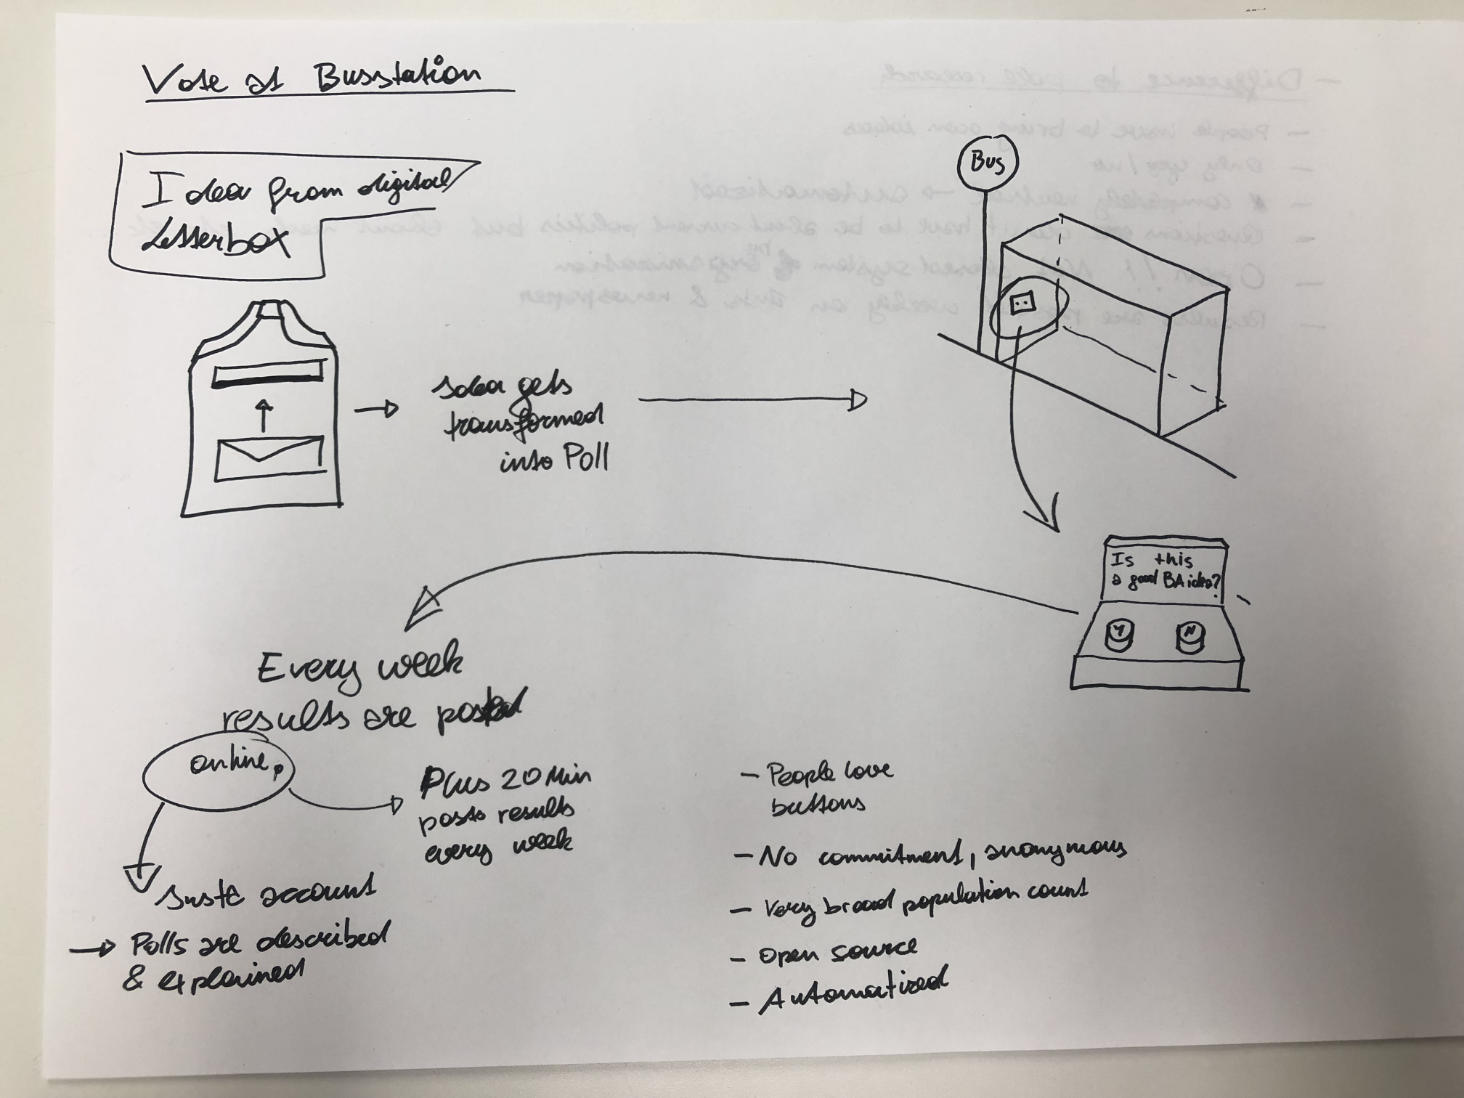 Vote at Busstation
Idea from digital
Letterbox
Bus
Idea gets
transformed
into Poll
Is this
a good BA idea?
Y N
Every week
results are posted
online,
Plus 20 Min
posts results
every week
Insta account
→ Polls are described
& explained
- People love
buttons
- No commitment, anonymous
- Very broad population count
- Open source
- Automatized